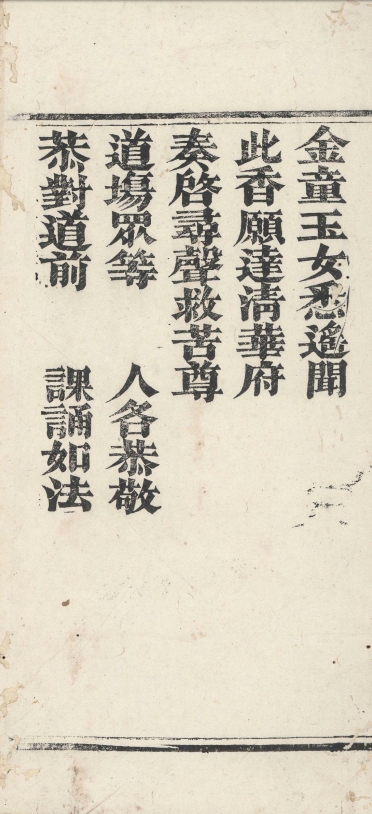 金童玉女悉遙聞
此香願達淸華府
奏啓尋聲救苦尊
道塲眾等　人各恭敬
恭對道前　課誦如法